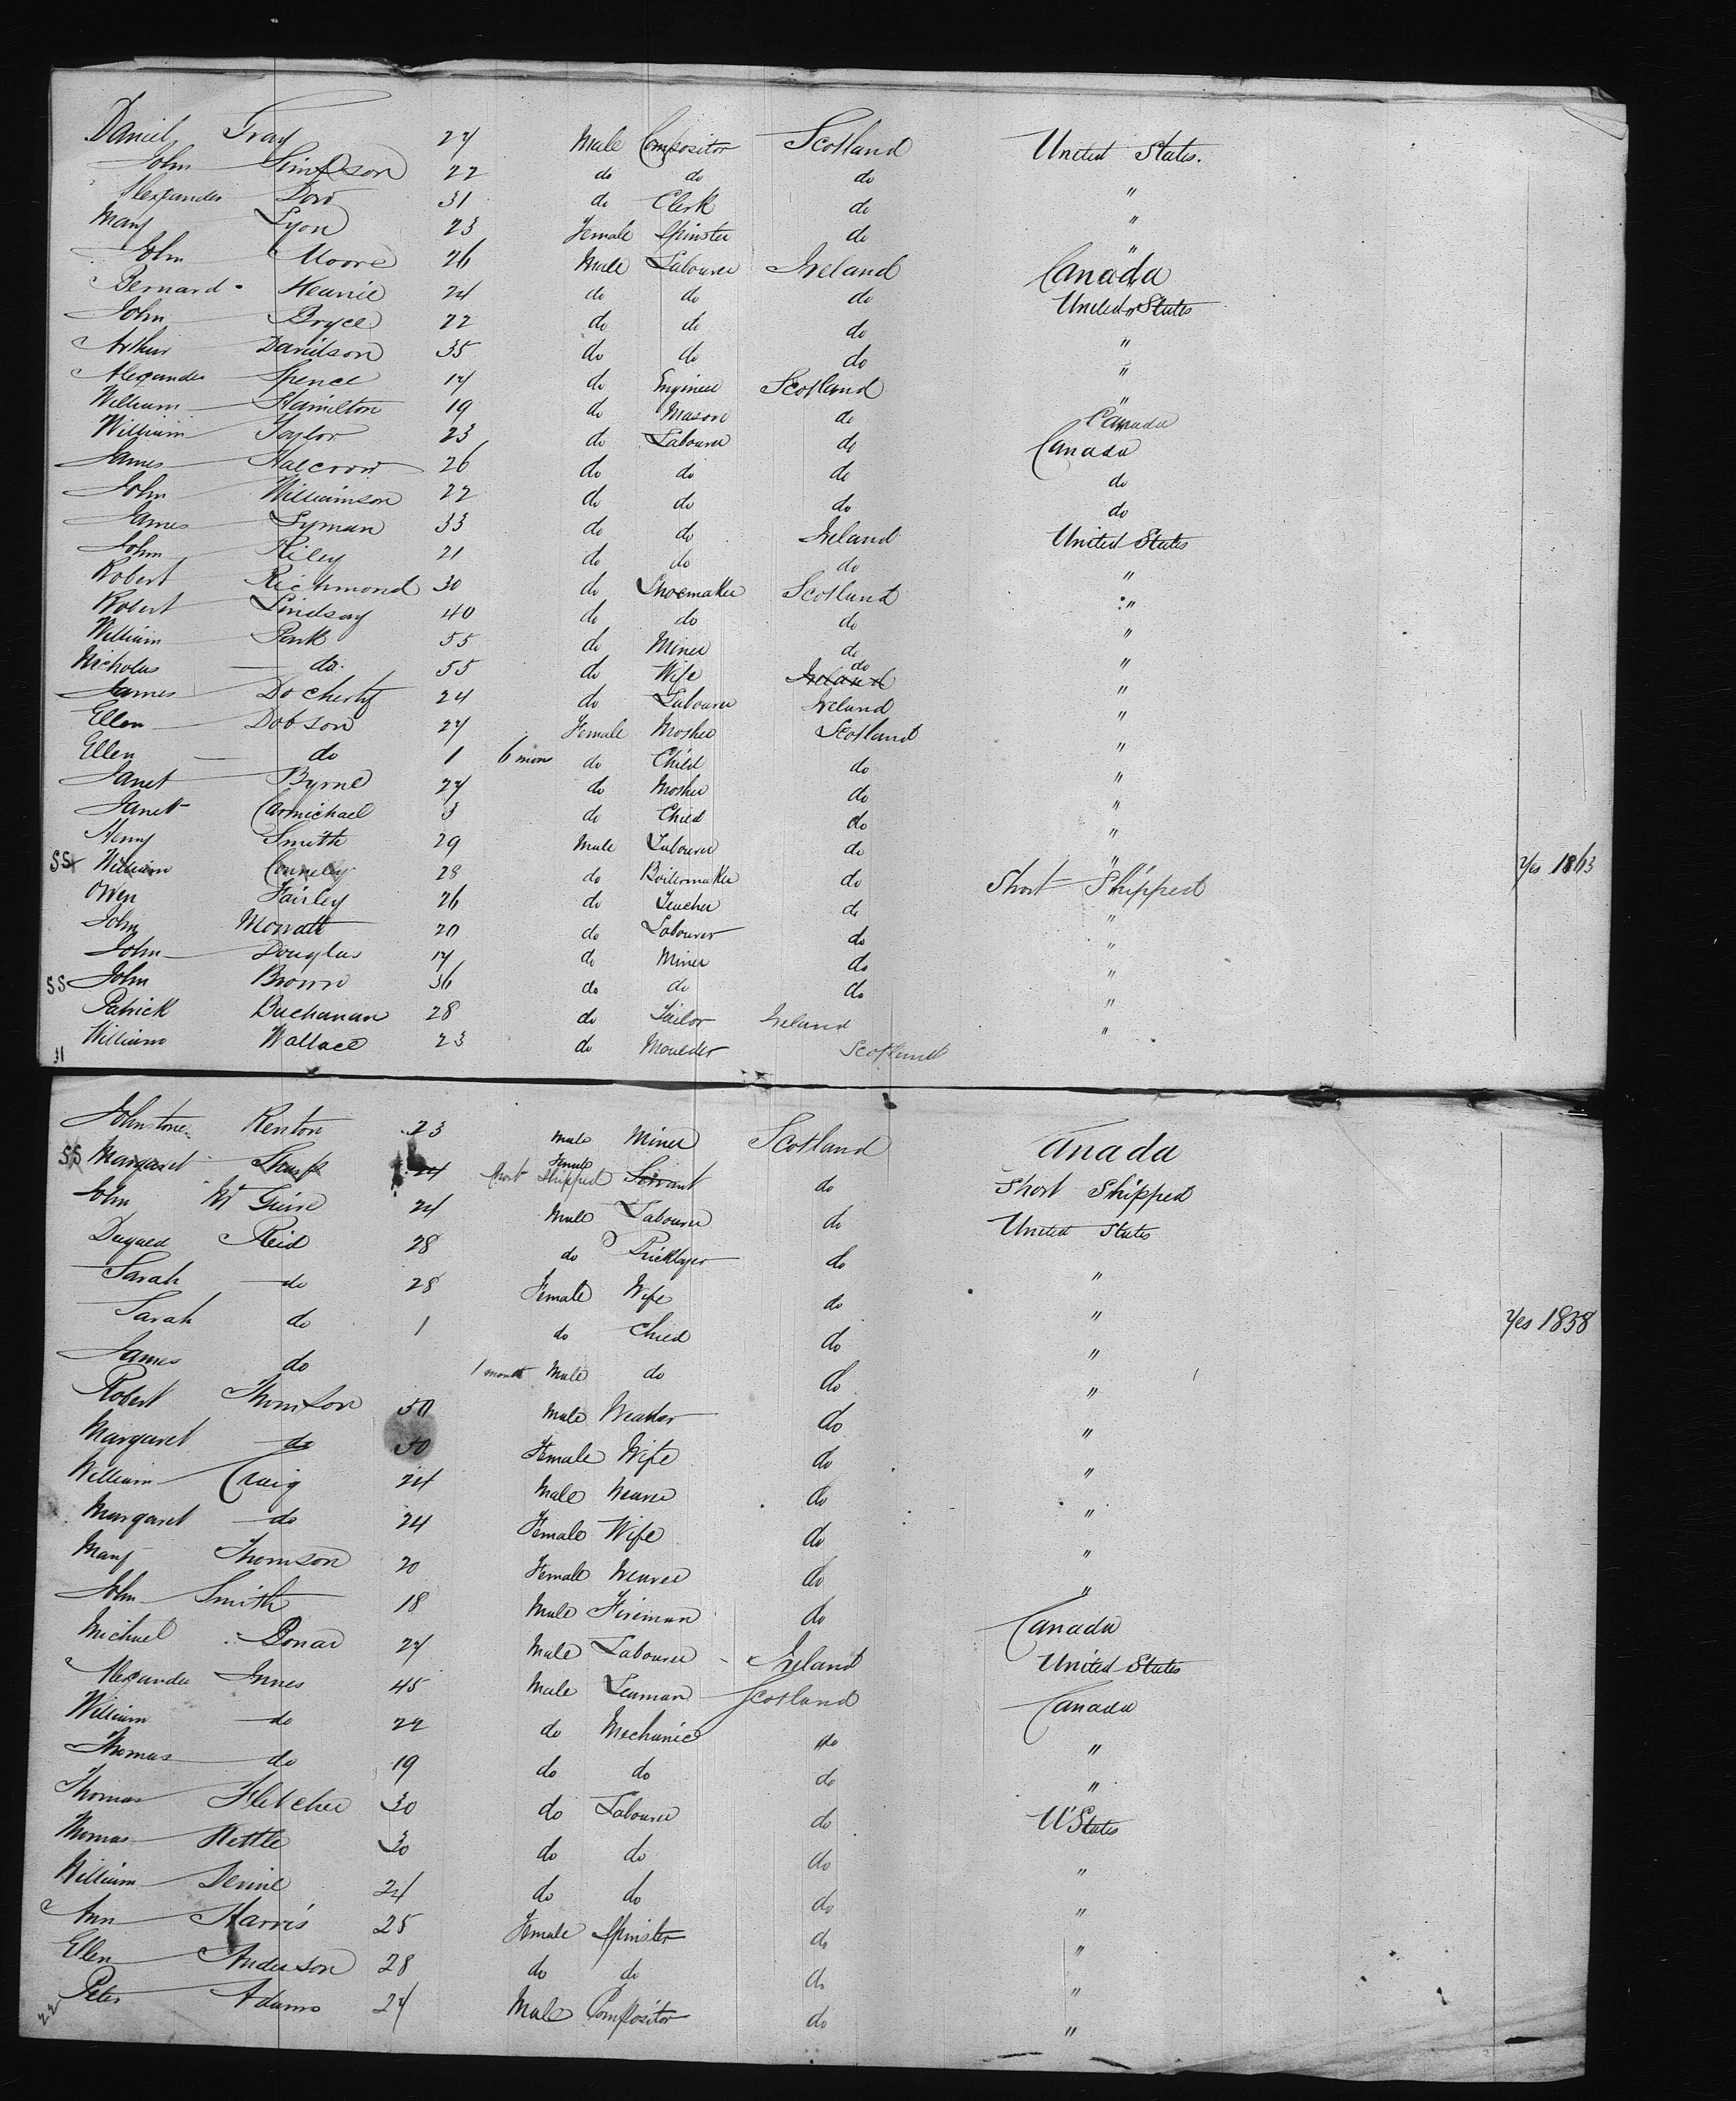 Daniel Gray 24 Male Compositor Scotland United States.
John Simpson 22 do do do "
Alexander Dow 31 do Clerk do "
Mary Lyon 23 Female Spinster do "
John Moore 26 Male Labourer Ireland Canada
Bernard Heanie 24 do do do United States
John Bryce 22 do do do "
Arthur Davidson 35 do do do "
Alexander Spence 17 do Engineer Scotland "
William Hamilton 19 do Mason do Canada
William Taylor 23 do Labourer do Canada
James Halcrow 26 do do do do
John Williamson 22 do do do do
James Lyman 33 do do Ireland United States
John Riley 21 do do do "
Robert Richmond 30 do Shoemaker Scotland "
Robert Lindsay 40 do do do "
William Park 55 do Miner do "
Nicholas do 55 do Wife Ireland do "
James Docherty 24 do Labourer Ireland "
Ellen Dobson 24 Female Mother Scotland "
Ellen do 1 6 mons do Child do "
Janet Byrne 24 do Mother do "
Janet Carmichael 3 do Child do "
Henry Smith 29 Male Labourer do "
SS William Connely 28 do Boilermaker do Short Shipped Yes 1863
Owen Fairley 26 do Teacher do "
John 20 do Labourer do "
John Douglas 17 do Miner do "
SS John Brown 36 do do do "
Patrick Buchanan 28 do Tailor Ireland "
William Wallace 23 do Moulder Scotland
31
Johnstone Renton 23 Male Miner Scotland Canada
SS Margaret Sharp 24 Short Shipped Female Servant do Short Shipped
John McGuire 24 Male Labourer do United States
Dugald Reid 28 do Bricklayer do "
Sarah do 28 Female Wife do "
Sarah do 1 do Child do " Yes 1838
James do 1 month Male do do "
Robert Thomson 50 Male Weaver do "
Margaret do 50 Female Wife do "
William Craig 24 Male Weaver do "
Margaret do 24 Female Wife do "
Mary Thomson 20 Female Weaver do "
John Smith 18 Male Fireman do Canada
Michael Bonar 24 Male Labourer Ireland United States
Alexander Innes 45 Male Seaman Scotland Canada
William do 22 do Mechanic do "
Thomas do 19 do do do "
Thomas Fletcher 30 do Labourer do U States
Thomas Kettle 30 do do do "
William 24 do do do "
Ann Harris 25 Female Spinster do "
Ellen Anderson 28 do do do "
Peter Adams 24 Male Compositor do "
22